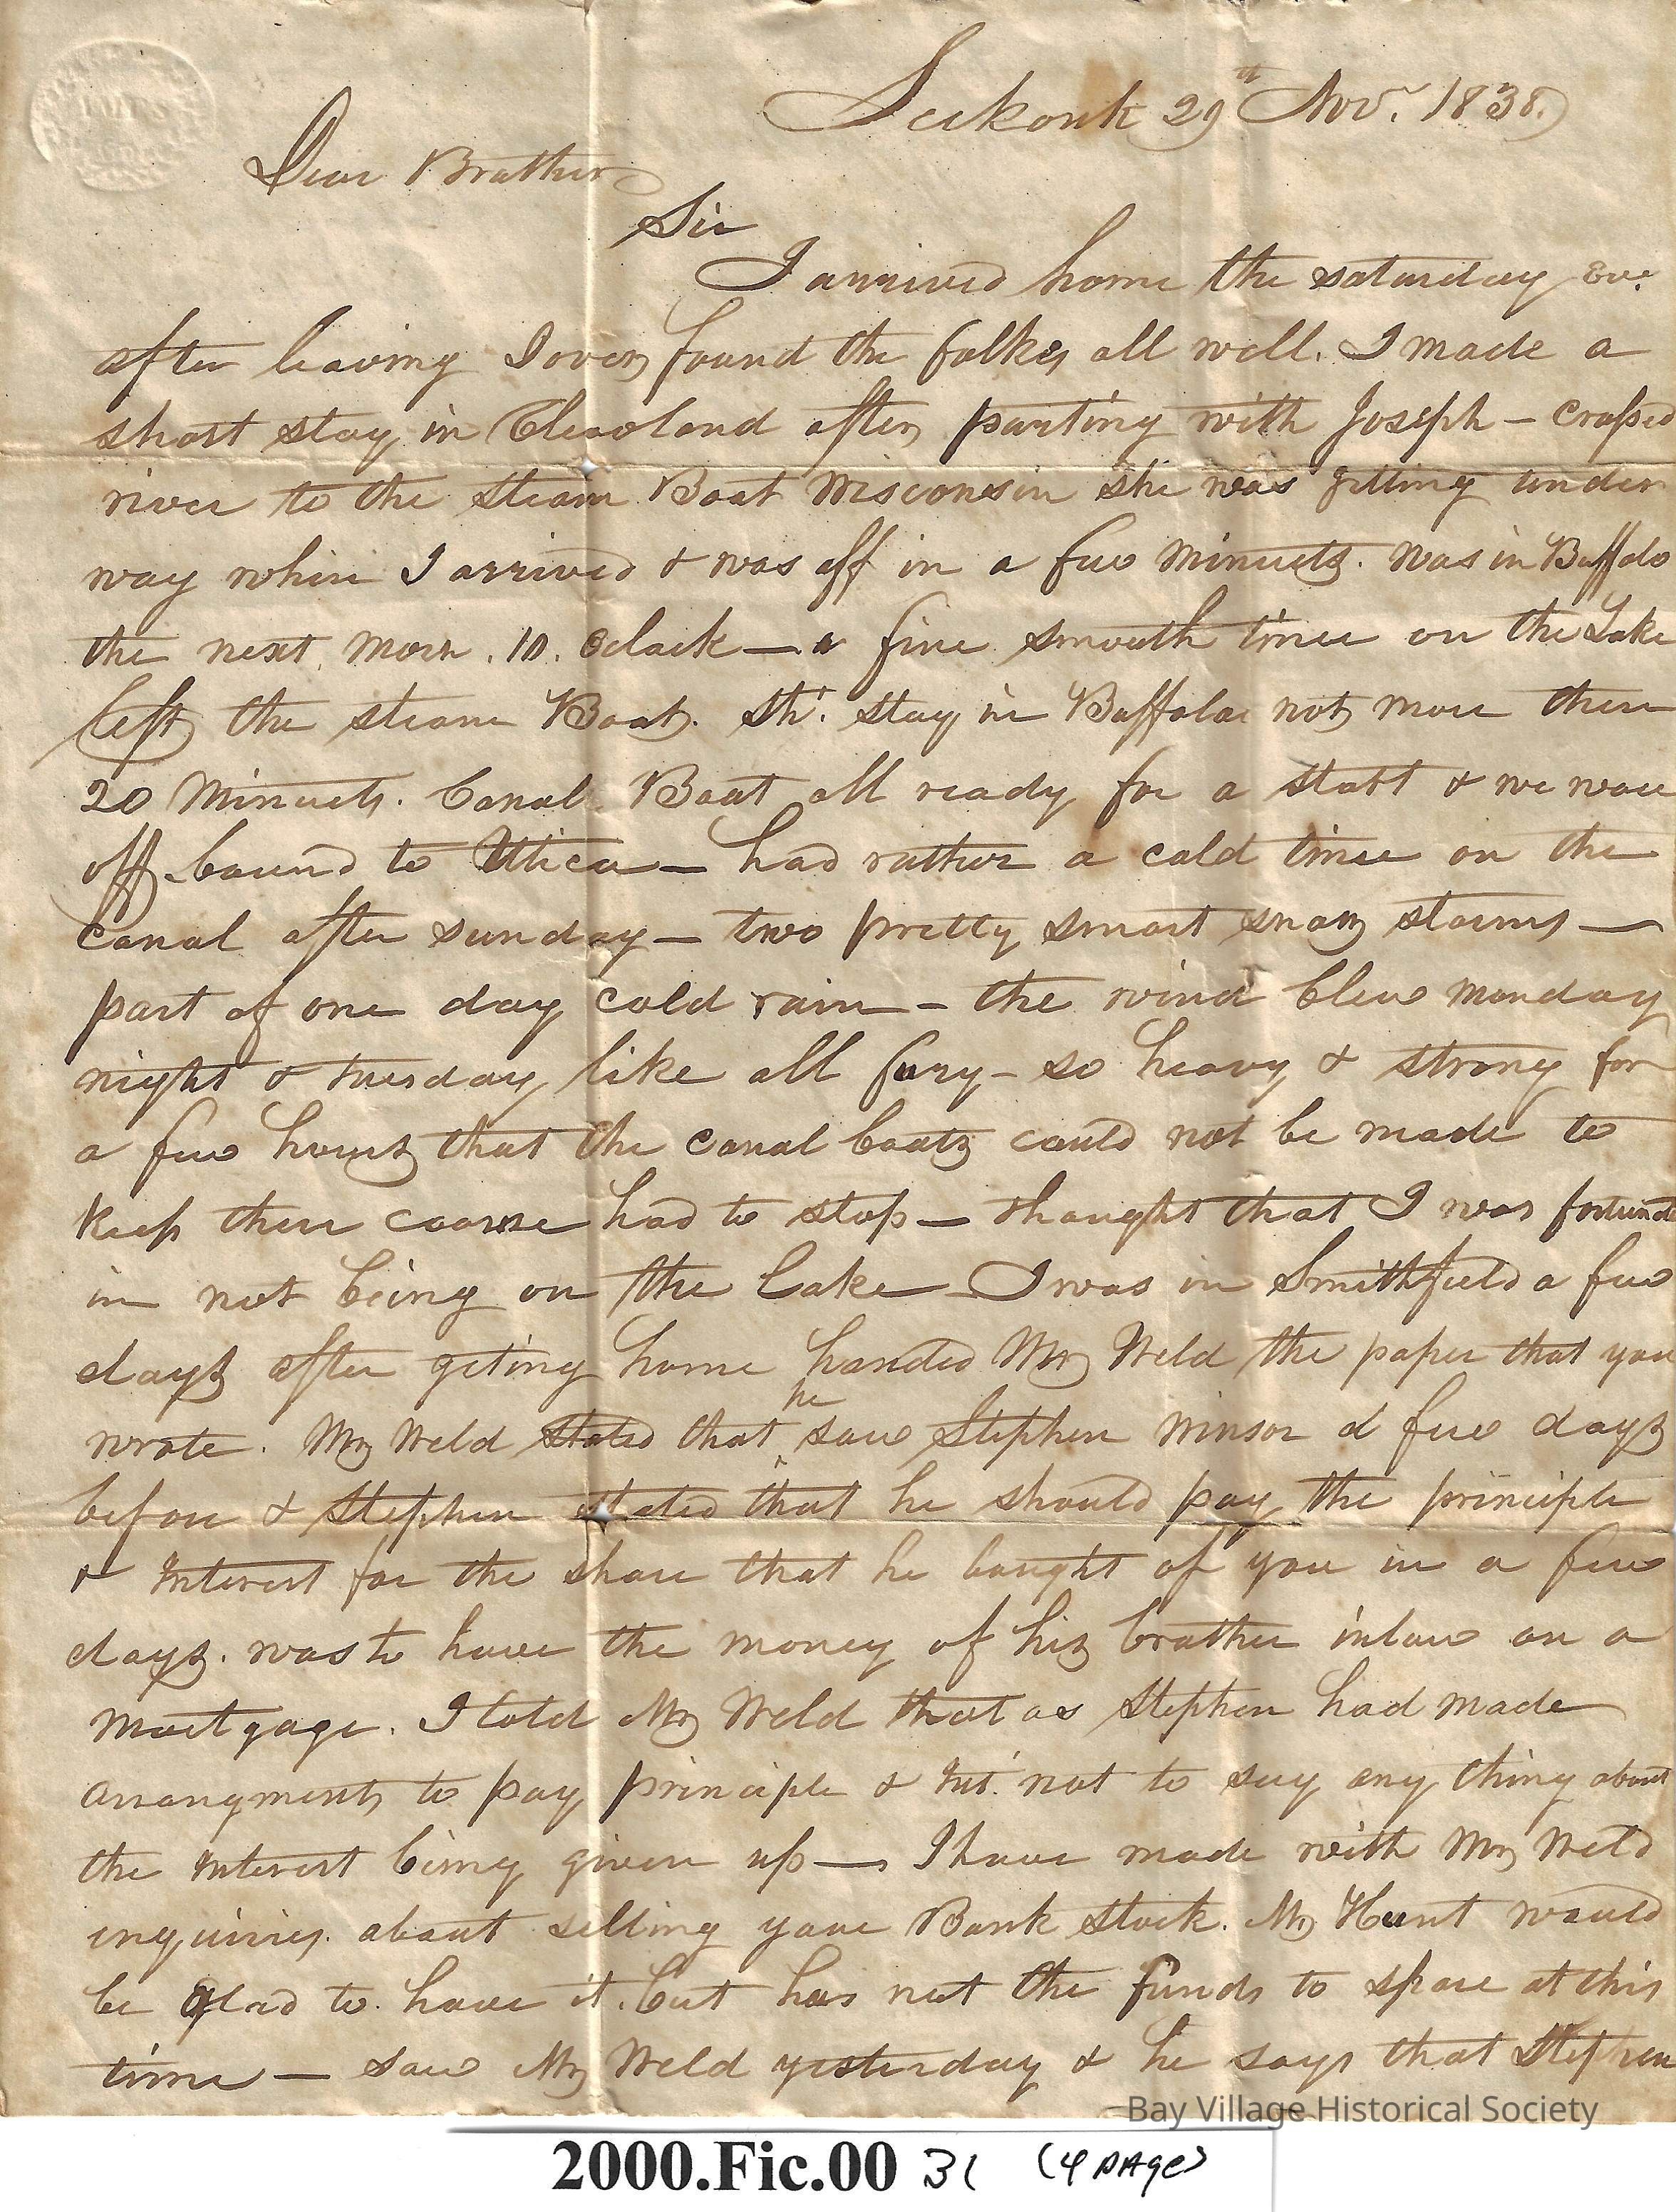 Seekonk 29th Nov. 1838.
Dear Brother
Sir
I arrived home the saturday Eve.
after leaving Dover found the folks all well. I made a
short stay in Cleaveland after parting with Joseph – crossed
river to the steam Boat Wisconsin she was getting under
way when I arrived & was off in a few minuets. was in Buffalo
the next morn. 10. oclock — a fine smooth time on the Lake
left the steam Boat. sht. stay in Buffaloe not more then
20 Minuets. Canal Boat all ready for a start & we ware
off bound to Utica — had rather a cold time on the
Canal after sunday — two pretty smart snow storms —
part of one day cold rain — the wind blew monday
night & tuesday like all fury — so heavy & strong for
a few hours that the canal boats could not be made to
keep there coarse had to stop — thought that I was fortunate
in not being on the Lake — I was in Smithfield a few
days after geting home handed Mr Weld the paper that you
wrote. Mr Weld stated that he saw Stephen Winsor a few days
before & Stephen stated that he should pay the principle
& Interest for the share that he bought of you in a few
days. was to have the money of his brother inlaw on a
mortgage. I told Mr Weld that as Stephen had made
arrangments to pay principle & Int. not to say any thing about
the Interest being given up — I have made with Mr Weld
inquiries about selling your Bank Stock. Mr Hunt would
be glad to have it. but has not the funds to spare at this
time — saw Mr Weld yesterday & he says that Stephen
Bay Village Historical Society
2000.Fic.00 31 (4 PAge)